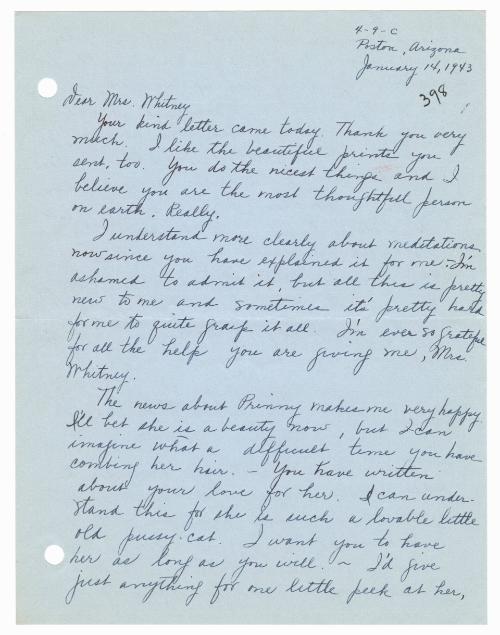 4-9-C
Poston, Arizona
January 14, 1943
398
Dear Mrs. Whitney
Your kind letter came today. Thank you very
much. I like the beautiful prints you
sent, too. You do the nicest things and I
believe you are the most thoughtful person
on earth. Really.
I understand more clearly about meditations
now since you have explained it for me. I'm
ashamed to admit it, but all this is pretty
new to me and sometimes it's pretty hard
for me to quite grasp it all. I'm ever so grateful
for all the help you are giving me, Mrs.
Whitney.
The news about Prinny makes me very happy.
I'll bet she is a beauty now, but I can
imagine what a difficult time you have
combing her hair. — You have written
about your love for her. I can under-
stand this for she is such a lovable little
old pussy-cat. I want you to have
her as long as you will. ~ I'd give
just anything for one little peek at her,